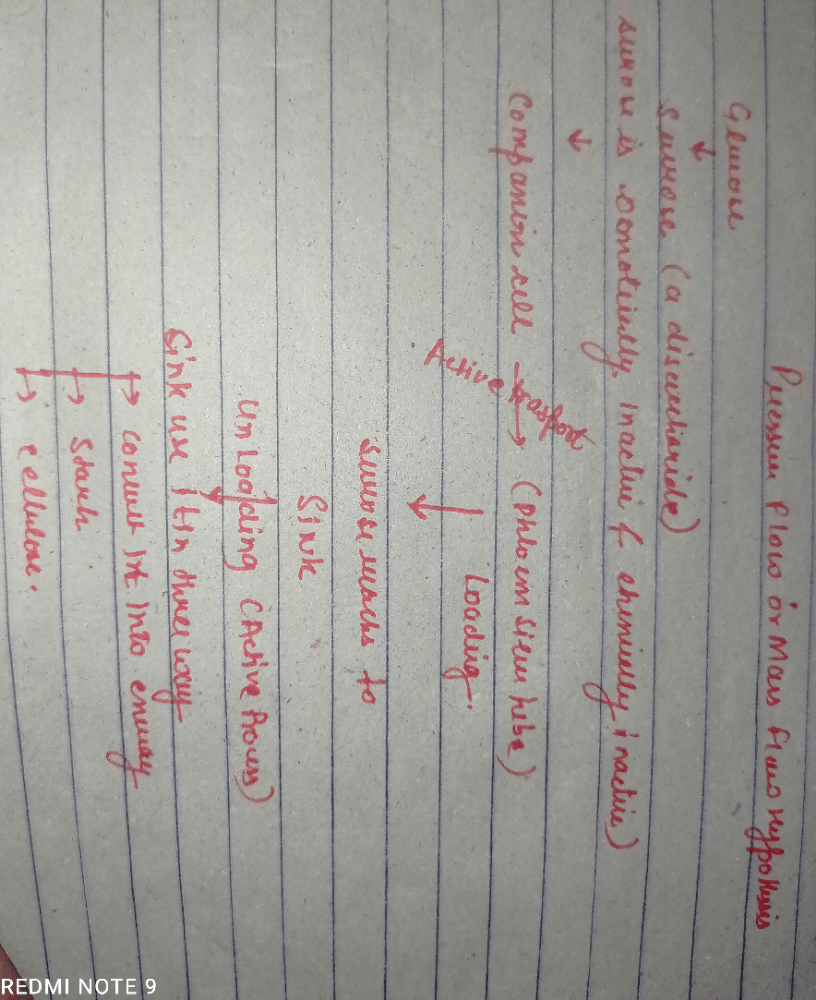 Pressure Flow or Mass Flow Hypothesis
Glucose
↓
Sucrose (a disaccharide)
sucrose is osmotically inactive & chemically inactive)
↓
Companion cell → (phloem sieve tube)
Active trasport
↓ Loading.
sucrose reaches to
Sink
Unloading (Active Process)
↓
Sink use it in three way
→ convert int into energy
→ Starch
→ cellulose.
REDMI NOTE 9